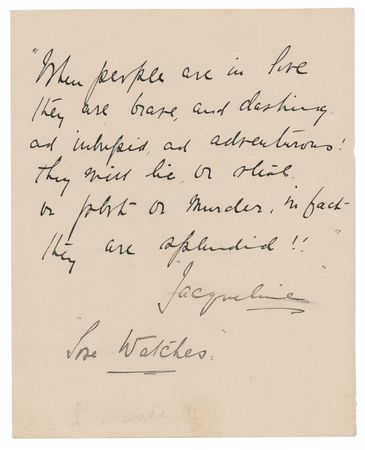 "When people are in love
they are brave, and dashing,
ad intrepid, ad adventurous!
they will lie, or steal,
or or murder, in fact
they are splendid!!"
"Jacqueline"
"Love Watches".